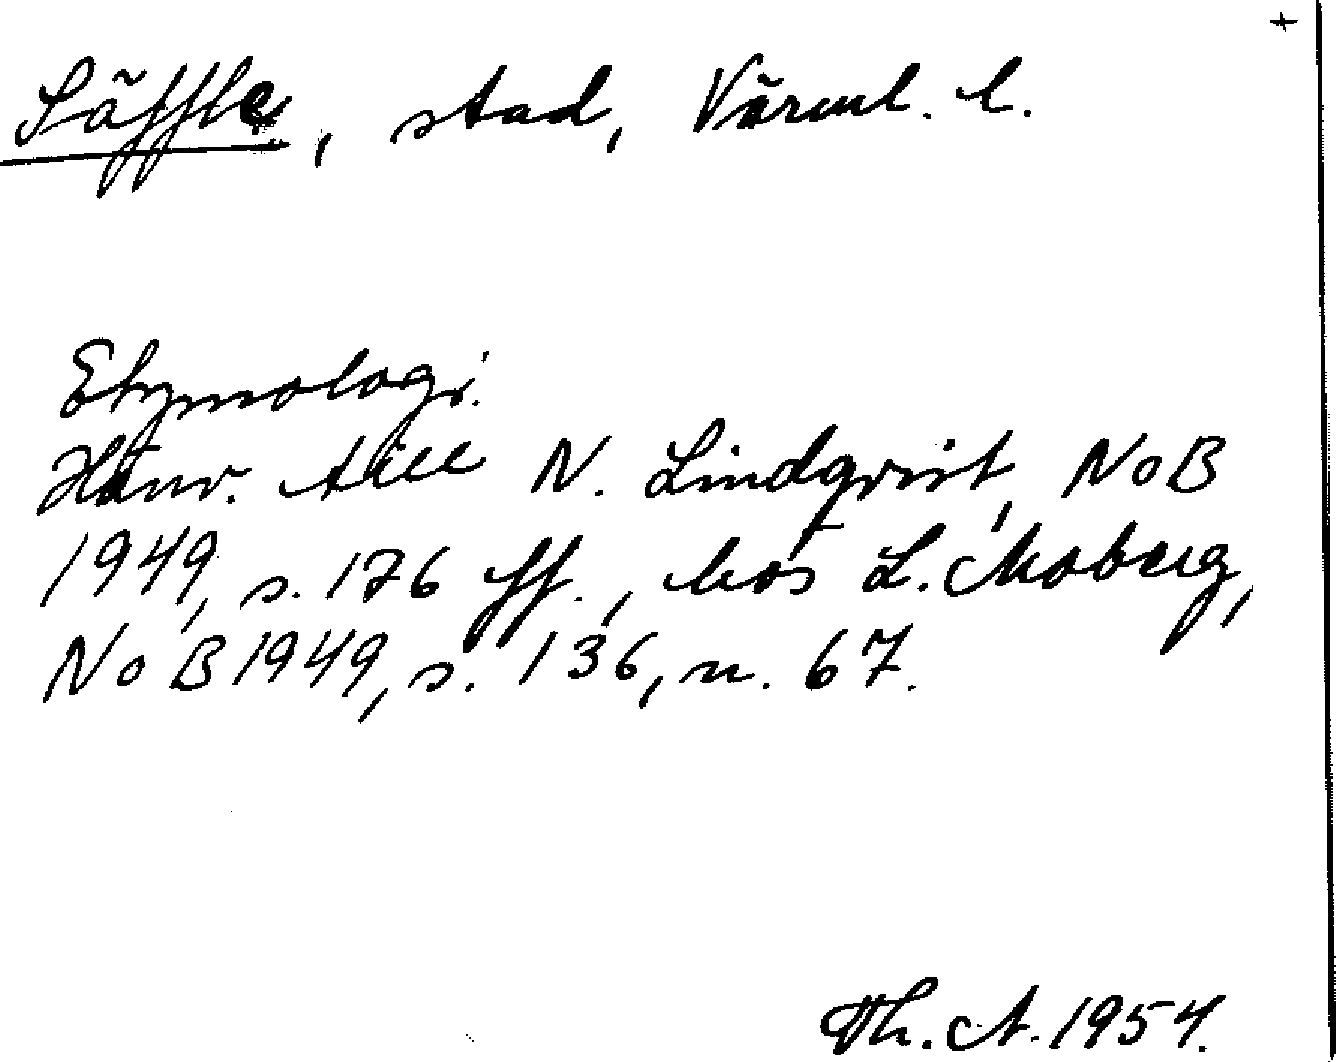 +
Säffle, stad, Värml. l.
Etymologi.
Hänv. till N. Lindqvist, NoB
1949, s. 176 ff., hos L. Moberg,
NoB 1949, s. 136, n. 67.
Th. A. 1954.